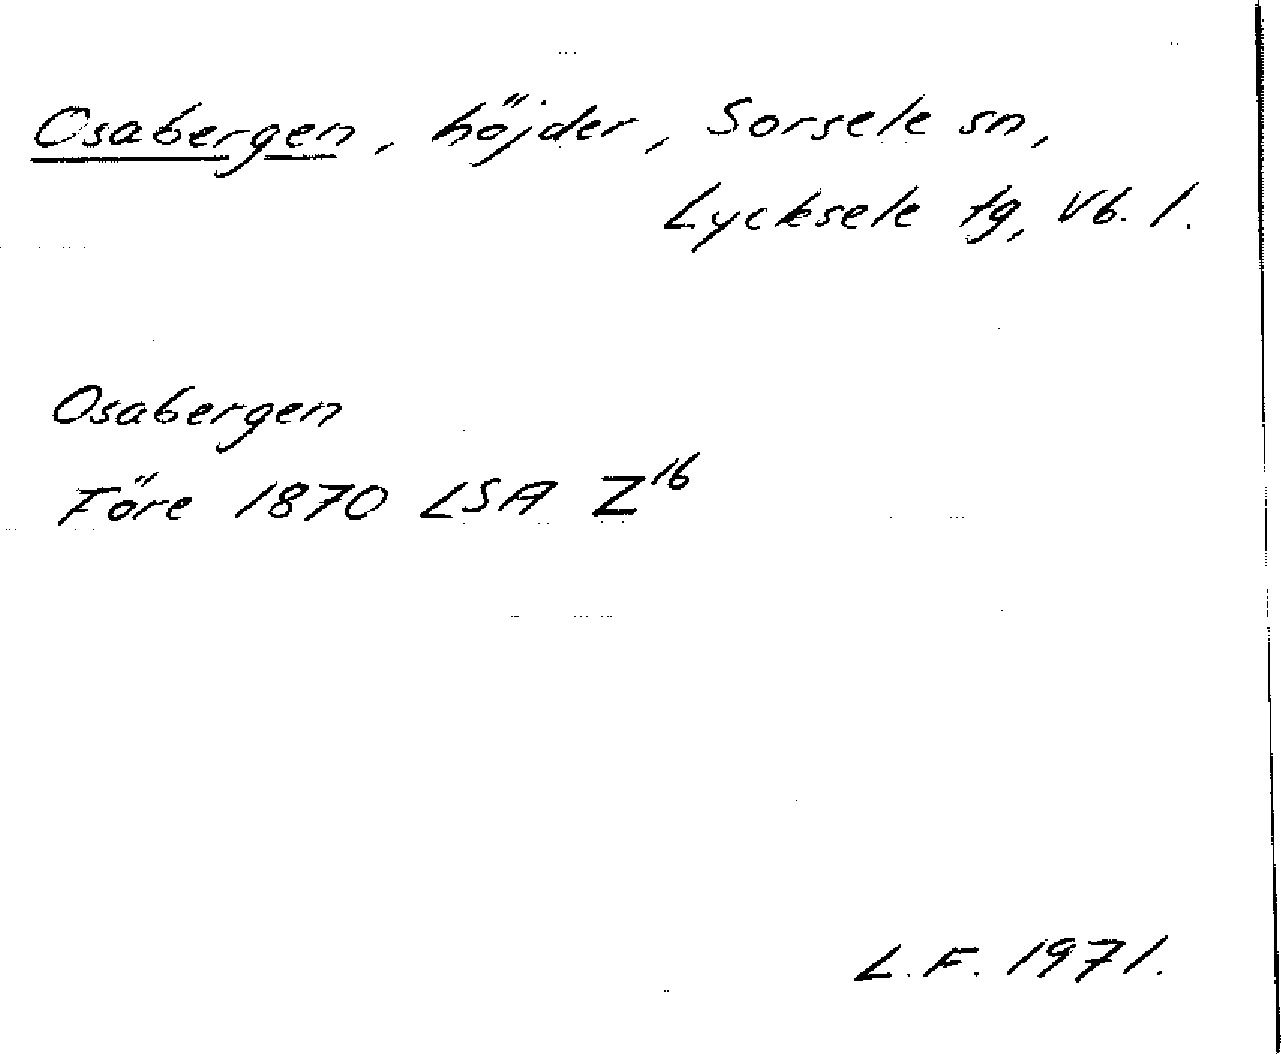 Osabergen, höjder, Sorsele sn,
Lycksele tg, Vb. l.
Osabergen
Före 1870 LSA Z16
L.F. 1971.